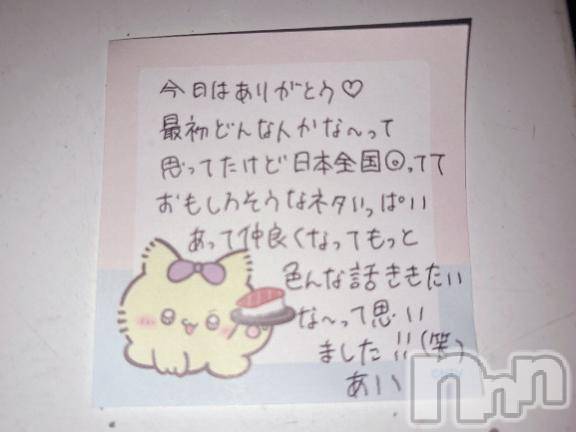 今日はありがとう♡
最初どんな人かな〜って
思ってたけど日本全国◎ってて
おもしろそうなネタいっぱい
あって仲良くなってもっと
色んな話ききたい
な〜って思い
ました!!(笑)
あい
nnn